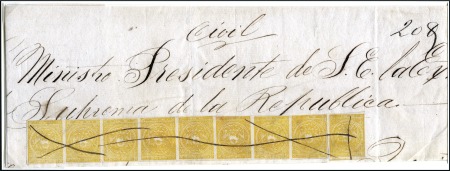 Civil 208
Ministro Presidente de S. E. la Ex
Suprema de la Republica.